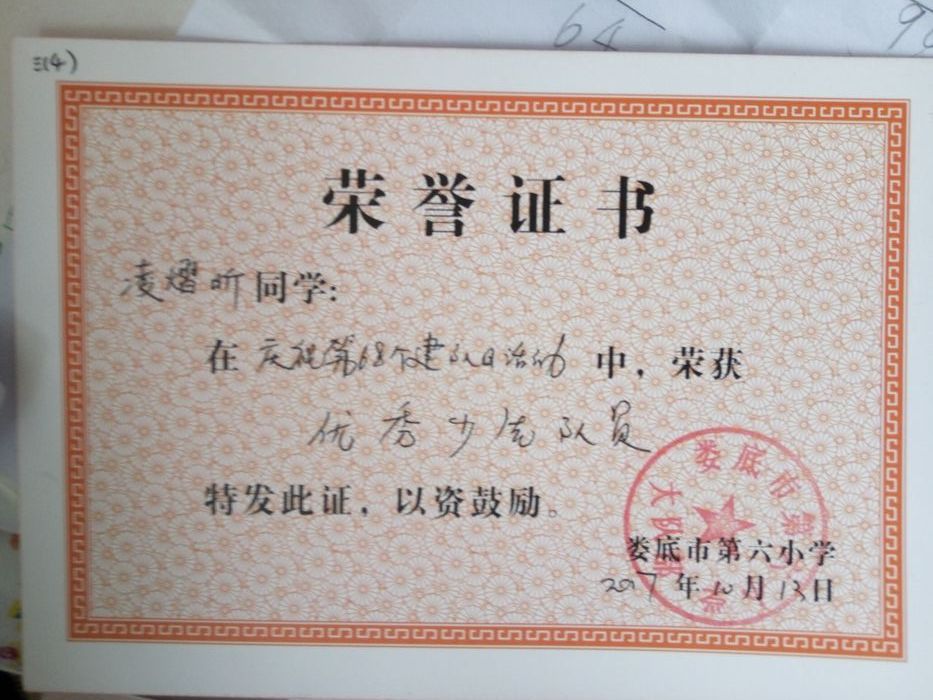 64
三(4)
荣誉证书
凌熠昕同学:
在庆祝第68个建队日活动中，荣获
优秀少先队员
特发此证，以资鼓励。
娄底市第六小学
2017年10月13日
娄底市第
大队部